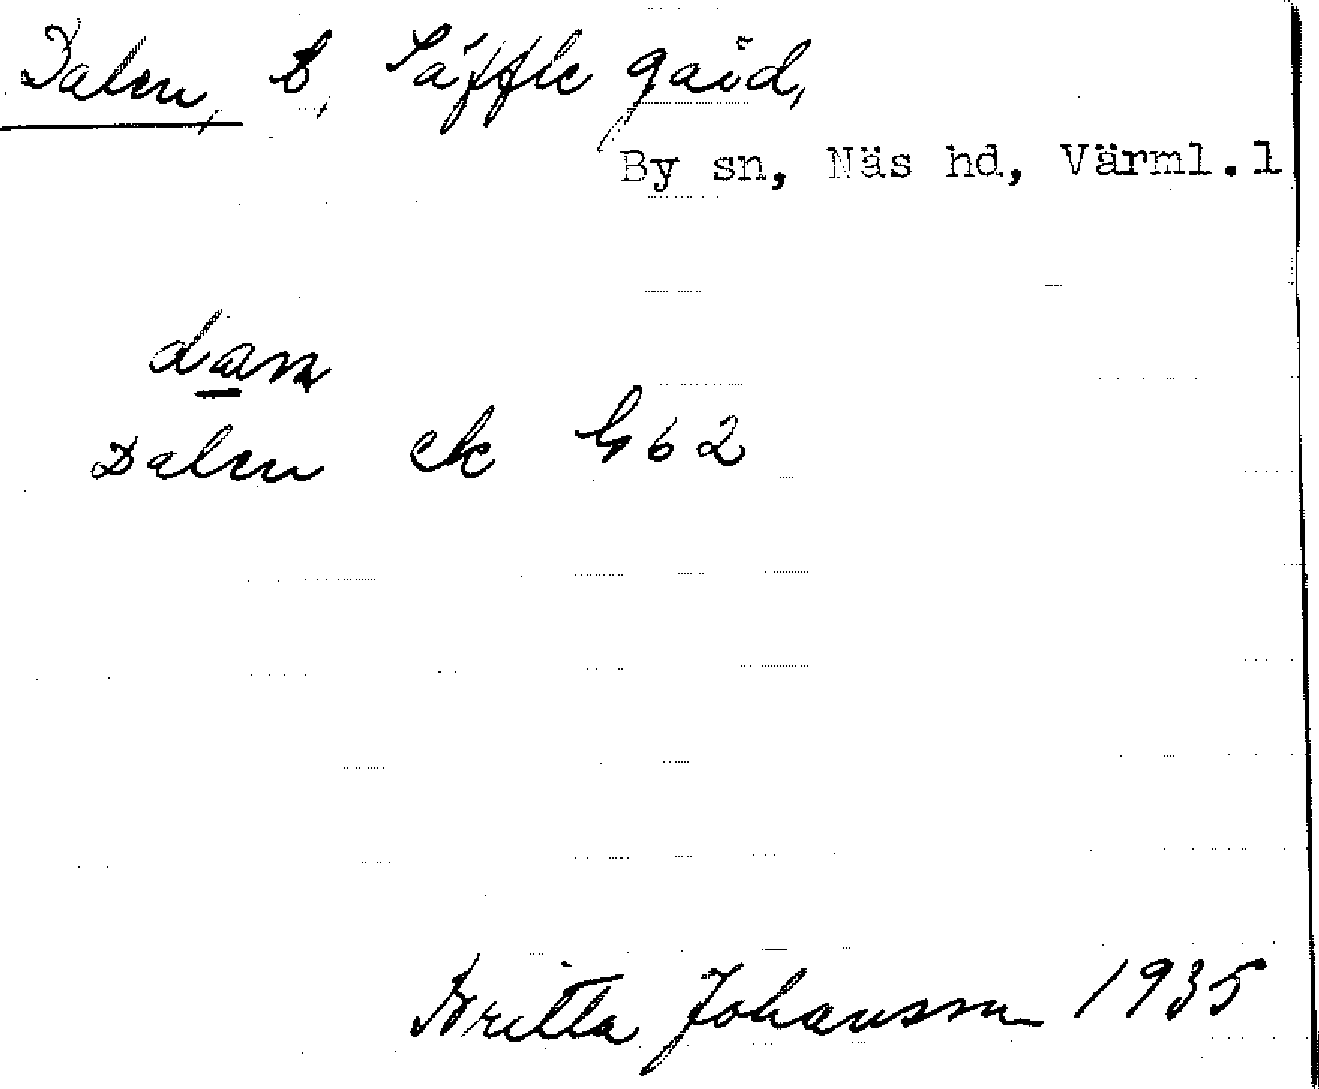 Dalen, t, Säffle gård,
By sn, Näs hd, Värml.l
dam
Dalen ek h62
Britta Johansson 1935